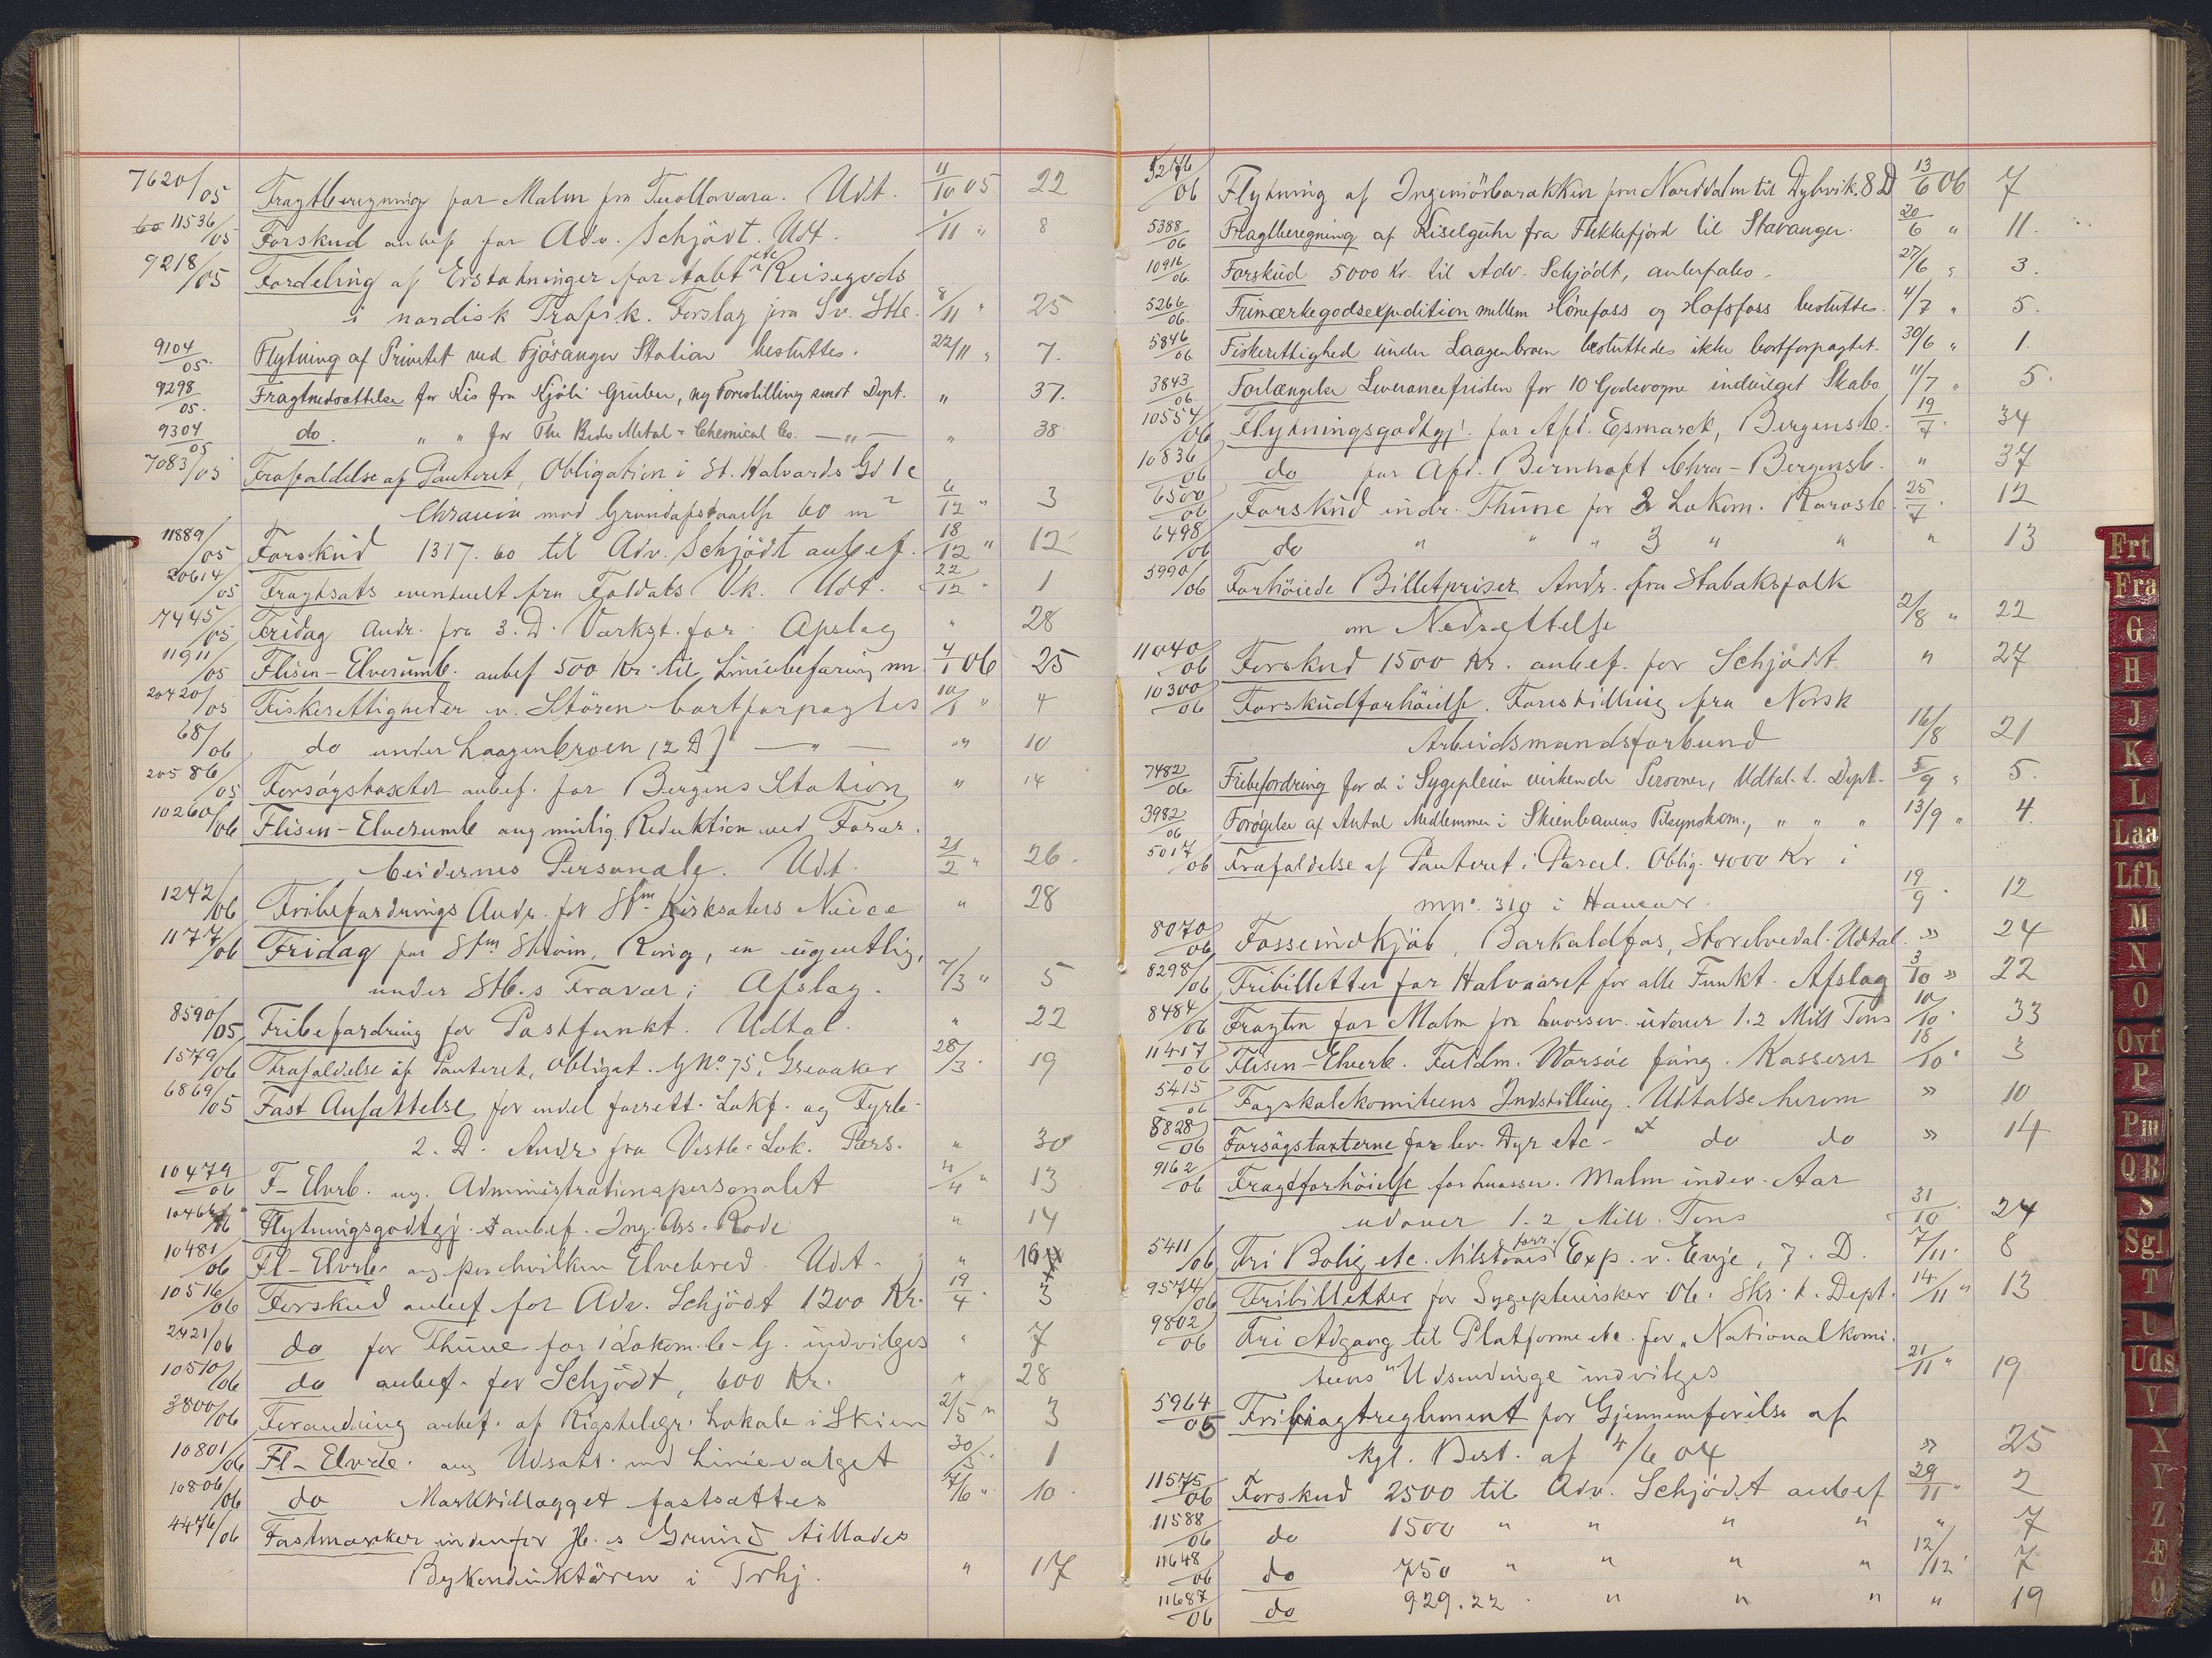 7620/05 Fragtberegning for Malm fra Tuollavara. Udt. 11/10 05 22
11536/05 Forskud anbef for Adv. Schjödt. Udt. 1/11 " 8
9218/05 Fordeling af Erstatninger for tabt etc Reisegods
i nordisk Trafik. Forslag fra Sv. Stb. 8/11 " 25
9104/05. Flytning af Privetet ved Fjösanger Station besluttes. 22/11 " 7.
9298/05. Fragtnedsættelse for Kis fra Kjöli Gruber, ny Forestilling sendt Dept. " 37.
9304/05 do. " " for The Bede Metal & Chemical Co. —"— " 38.
7083/05 Frafaldelse af Panteret, Obligation i St. Halvards Gd 1c
Chrania mod Grundafstaaelse 60 m² 6/12 " 3
11889/05 Forskud 1317.60 til Adv. Schjödt anbef. 18/12 " 12
20614/05 Fragtsats eventuelt fra Foldals Vk. Udt. 22/12 " 1
7445/05 Fridag Andr. fra 3. D. Værkst. for Afslag " 28
11911/05 Flisen-Elverumb. anbef 500 Kr. til Liniebefaring m 4/1 06 25
20420/05 Fiskerettigheder v. Stören bortforpagtes 10/1 " 4
68/06 do under Laagenbroen (2 D) —"— " 10
20586/05 Forsögstaxter anbef. for Bergens Station " 14
10260/06 Flisen-Elverumb ang mulig Reduktion ved Forar.
beidernes Personale. Udt. 21/2 " 26.
1242/06 Fribefordrings Andr. for Stm Kirksæters Niece " 28
1177/06 Fridag for Stm Ström, Ring, en ugentlig,
under Stb.s Fravær; Afslag. 7/3 " 5
8590/05 Fribefordring for Postfunkt. Udtal. " 22
1579/06 Frafaldelse af Panteret, Obligat. G No. 75, Greaaker 28/3. 19
6869/05 Fast Ansættelse for endel forrett. Lokf. og Fyrb.
2. D. Andr fra Vestb. Lok. Pers. " 30
10479/06 F-Elvrb. ang. Administrationspersonalet 4/4 " 13
/06 Flytningsgodtgj. anbef. Ing. Ass. Rode " 14
10481/06 Fl-Elvrb. ang paa hvilken Elvebred. Udt. " 16
10516/06 Forskud anbef for Adv. Schjödt 1200 Kr. 19/4. 3
2421/06 do for Thune for 1 Lokom. C-G. indvilges " 7
10510/06 do anbef. for Schjödt, 600 Kr. " 28
3800/06 Forandring anbef. af Rigstelegr. Lokale i Skien 2/5 " 3
10801/06 Fl-Elvrb. ang Udsatt. med Linievalget 30/5. 1
10806/06 do Marktillægget fastsættes 7/6 " 10.
4476/06 Fastmærker indenfor Jb.s Grund tillades
Bykonduktören i Trhj. " 17
5276/06 Flytning af Ingeniörbarakken fra Norddalen til Dybvik. 8 D 13/6 06 7
5388/06 Fragtberegning af Kiselguhr fra Flekkefjord til Stavanger. 20/6 " 11.
10916/06. Forskud 5000 Kr. til Adv. Schjödt, anbefales. 27/6 " 3.
5266/06. Frimærkegodsexpedition mellem Hönefoss og Hofsfoss besluttes. 4/7 " 5.
5846/06 Fiskerettighed under Laagenbroen besluttedes ikke bortforpagtet. 30/6 " 1.
3843/06. Forlængelse Leverancefristen for 10 Godsvogne indvilget Skabo 11/7 " 5.
10554/06 Flytningsgodtgj. for Afd. Esmarck, Bergensb. 19/7. 34
10836/06 do for Afd. Bernhoft Chra-Bergensb. " 37
6500/06 Forskud indv. Thune for 2 Lokom. Rørosb. 25/7. 12
6498/06 do " " " 3 " " " 13
5990/06 Forhöiede Billetpriser Andr. fra Stabaksfolk
om Nedsættelse 2/8 " 22
11040/06 Forskud 1500 Kr. anbef. for Schjödt " 27
10300/06 Forskudforhöielse. Forestilling fra Norsk
Arbeidsmandsforbund 16/8 21
7482/06 Fribefordring for de i Sygepleien virkende Personer, Udtal. t. Dept. 5/9 " 5.
3982/06 Forögelse af Antal Medlemmer i Skienbanens Tilsynskom., " " " 13/9 " 4.
5017/06 Frafaldelse af Panteret i Parcel. Oblig. 4000 Kr i
mn. 310 i Hamar. 19/9. 12
8070/06 Fosseindkjöb, Barkaldfos, Storelvedal. Udtal. " 24
8298/06 Fribilletter for Halvaaret for alle Funkt. Afslag 3/10 " 22
8484/06 Fragten for Malm fra Luossav. udover 1.2 Mill Tons 10/10. 33
11417/06 Flisen-Elverb. Fuldm. Warsöe fung. Kasserer 18/10. 3
5415/06 Fagskolekomiteens Indstilling. Udtalse herom " 10
8828/06 Forsögstaxterne for lev. Dyr etc. do do " 14
9162/06 Fragtforhöielse for Luossav. Malm indev. Aar
udover 1.2 Mill. Tons 31/10. 24
5411/06 Fri Bolig etc. Nilstvais forr. Exp. v. Evje, 7. D. 7/11. 8
9574/06 Fribilletter for Sygepleiersker Ob. Skr. t. Dept. 14/11 " 13
9802/06 Fri Adgang til Platforme etc. for „Nationalkomi-
teens" Udsendinge indvilges 21/11 " 19
5964/05 Frifragtreglement for Gjennemförelse af
kgl. Best. af 4/6 04 " 25
11575/06 Forskud 2500 til Adv. Schjödt anbef 29/11 " 2
11588/06 do 1500 " " " " " 7
11648/06 do 750 " " " " 12/12. 7
11687/06 do 929.22. " " " " 19
Frt
Fra
G
H
J
K
L
Laa
Lfh
M
N
O
Ovf
P
Pm
QR
S
Sgl
T
U
Uds
V
X
Y
Z
Æ
Ø